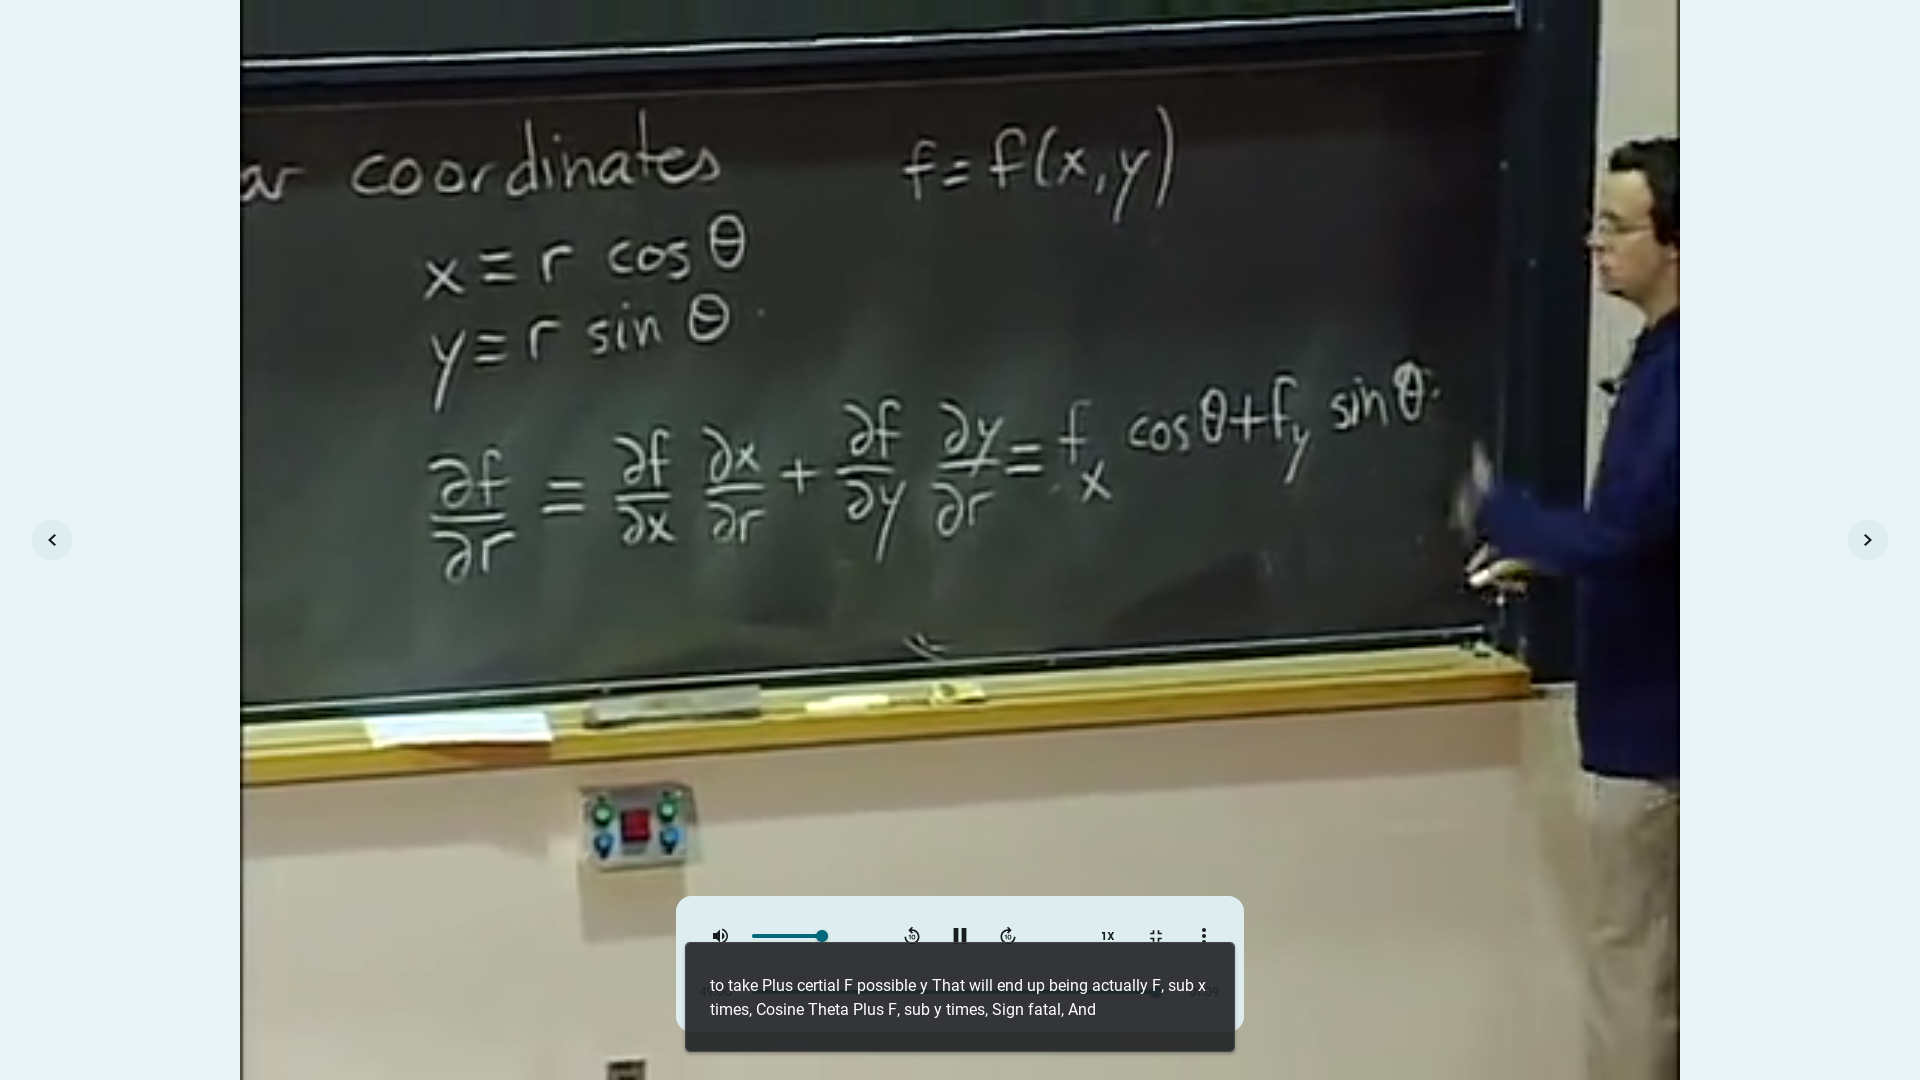 ar coordinates
f = f(x,y)
x ≡ r cos θ
y ≡ r sin θ
∂f/∂r = ∂f/∂x ∂x/∂r + ∂f/∂y ∂y/∂r = f_x cos θ + f_y sin θ
10
10
1X
to take Plus certial F possible y That will end up being actually F, sub x
times, Cosine Theta Plus F, sub y times, Sign fatal, And